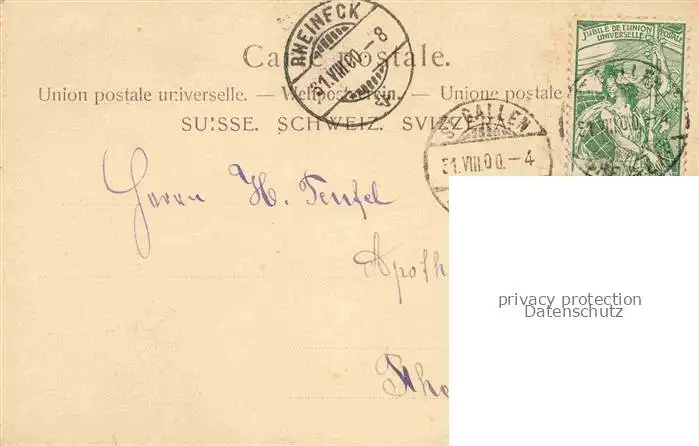 RHEINECK
31.VIII.00.-8
Carte postale.
JUBILÉ DE L'UNION POSTALE
UNIVERSELLE
Union postale universelle. — Weltpostverein. — Unione postale
SUISSE. SCHWEIZ. SVIZZERA
ST. GALLEN
31.VIII.00.-4
ST. GALLEN
31.VIII.00.-4
Herrn H. Teufel
Apoth
Rhe
privacy protection
Datenschutz